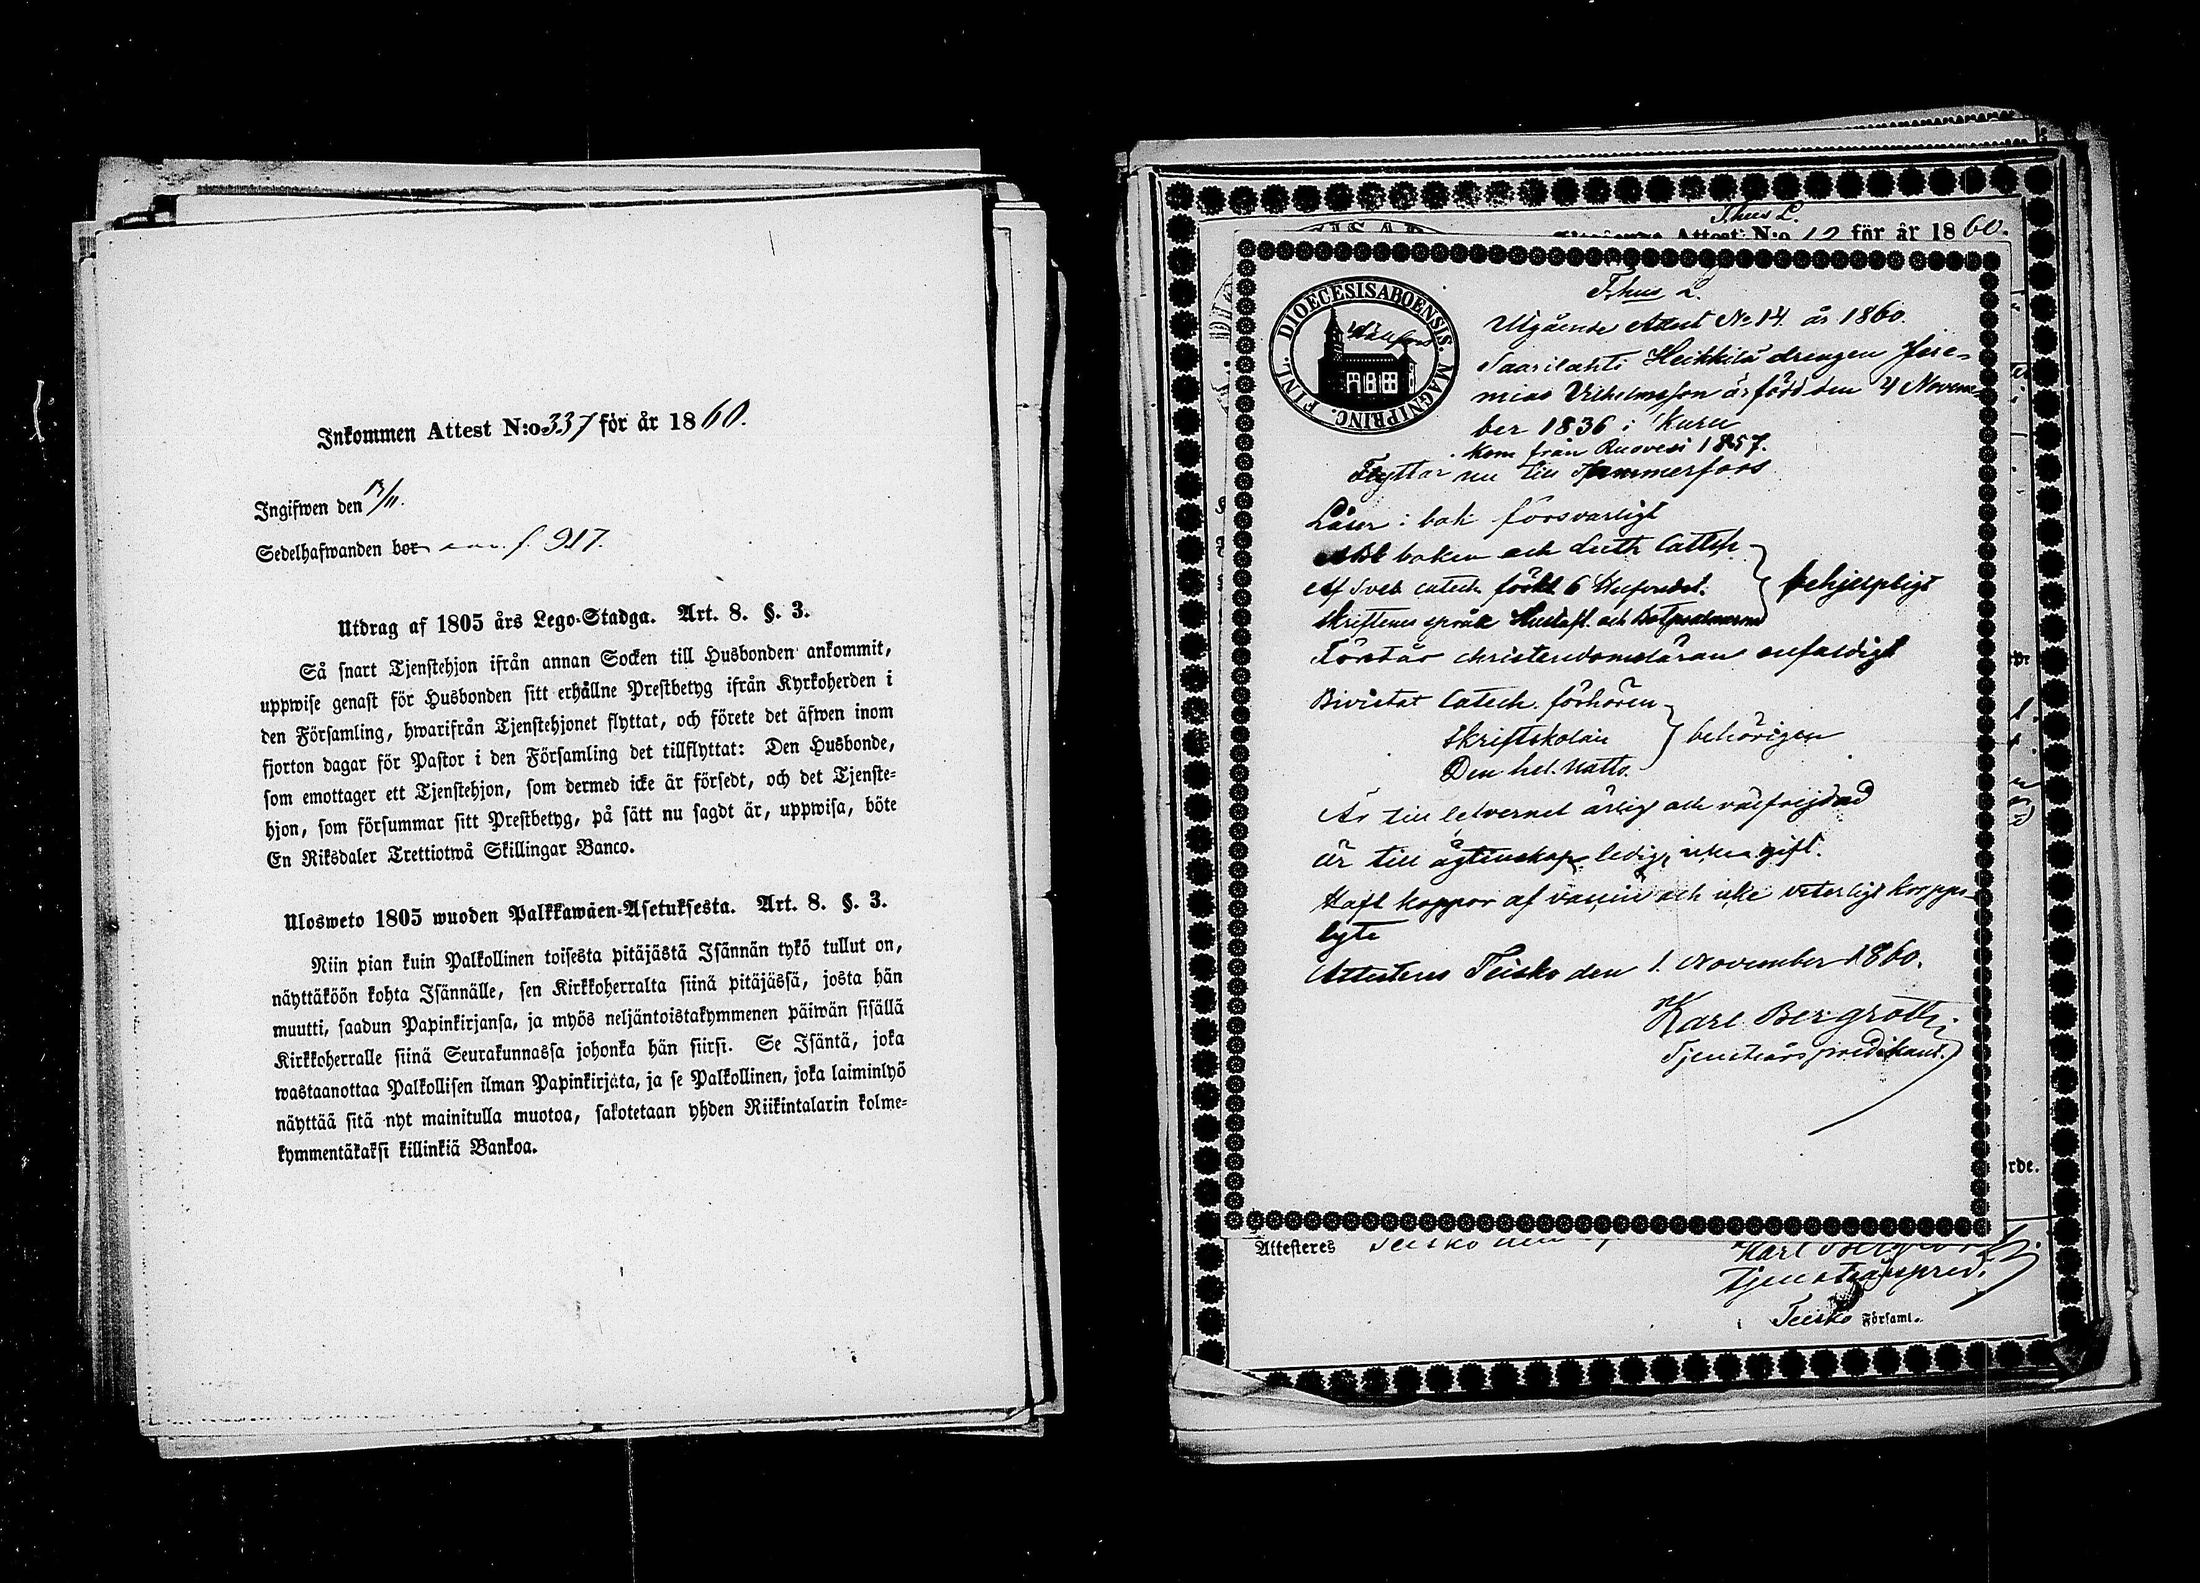 Inkommen Attest N:o 337 för år 1860.
Ingifwen den 13/11.
Sedelhafwanden bor f. 917.
Utdrag af 1805 års Lego-Stadga. Art. 8. §. 3.
Så snart Tjenstehjon ifrån annan Socken till Husbonden ankommit,
uppwise genast för Husbonden sitt erhållne Prestbetyg ifrån Kyrkoherden i
den Församling, hwarifrån Tjenstehjonet flyttat, och förete det äfwen inom
fjorton dagar för Pastor i den Församling det tillflyttat: Den Husbonde,
som emottager ett Tjenstehjon, som dermed icke är försedt, och det Tjenste-
hjon, som försummar sitt Prestbetyg, på sätt nu sagdt är, uppwisa, böte
En Riksdaler Trettiotwå Skillingar Banco.
Ulosweto 1805 wuoden Palkkawäen-Asetuksesta. Art. 8. §. 3.
Niin pian kuin Palkollinen toisesta pitäjästä Isännän tykö tullut on,
näyttäköön kohta Isännälle, sen Kirkkoherralta siinä pitäjässä, josta hän
muutti, saadun Papinkirjansa, ja myös neljäntoistakymmenen päiwän sisällä
Kirkkoherralle siinä Seurakunnassa johonka hän siirsi. Se Isäntä, joka
wastaanottaa Palkollisen ilman Papinkirjata, ja se Palkollinen, joka laiminlyö
näyttää sitä nyt mainitulla muotoa, sakotetaan yhden Riikintalarin kolme-
kymmentäkaksi killinkiä Bankoa.
Thus L.
Attest N:o 12 för år 1860.
FINL. DIOECESIS ABOENSIS. MAGN. PRINC.
Thus L.
Utgående Attest No 14. år 1860.
Saarilahti Heikkilä drengen Jere-
mias Vilhelmsson är född den 4 Novem-
ber 1836 i Kuru
kom från Ruovesi 1857.
Flyttar nu till Tammerfors
Läser i bok försvarligt
Abc boken och Luth Catech
Af Sveb catech förkl 6 Hufvudst. behjelpligt
Skriftenes språk Hustafl. och Botpsalmerna
Förstår christendomsläran enfaldigt
Bivistat Catech. förhören
Skriftskolan behörigen
Den hel. Nattv.
Är till lefvernet ärlig och välfrejdad
Är till ägtenskap ledig, icke gift.
Haft koppor af vaccin och icke veterligt kropps-
lyte
Attesteras Teisko den 1. November 1860.
Karl Bergroth
Tjenstårspredikant.
Attesteres Teisko den
Karl Bergroth
Tjenstårspred.
i Teisko Församl.
rde.